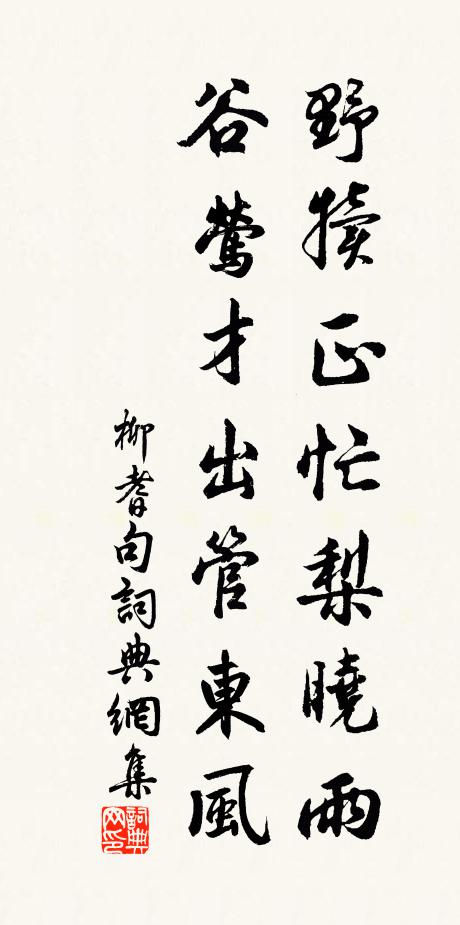 野犢正忙梨曉雨
谷鶯才出管東風
柳耆句詞典網集
詞典網印